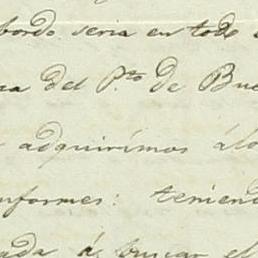 bordo seria en todo
za del P.to de Bue
adquirimos álo
nformes: teniend
ada á buscar el